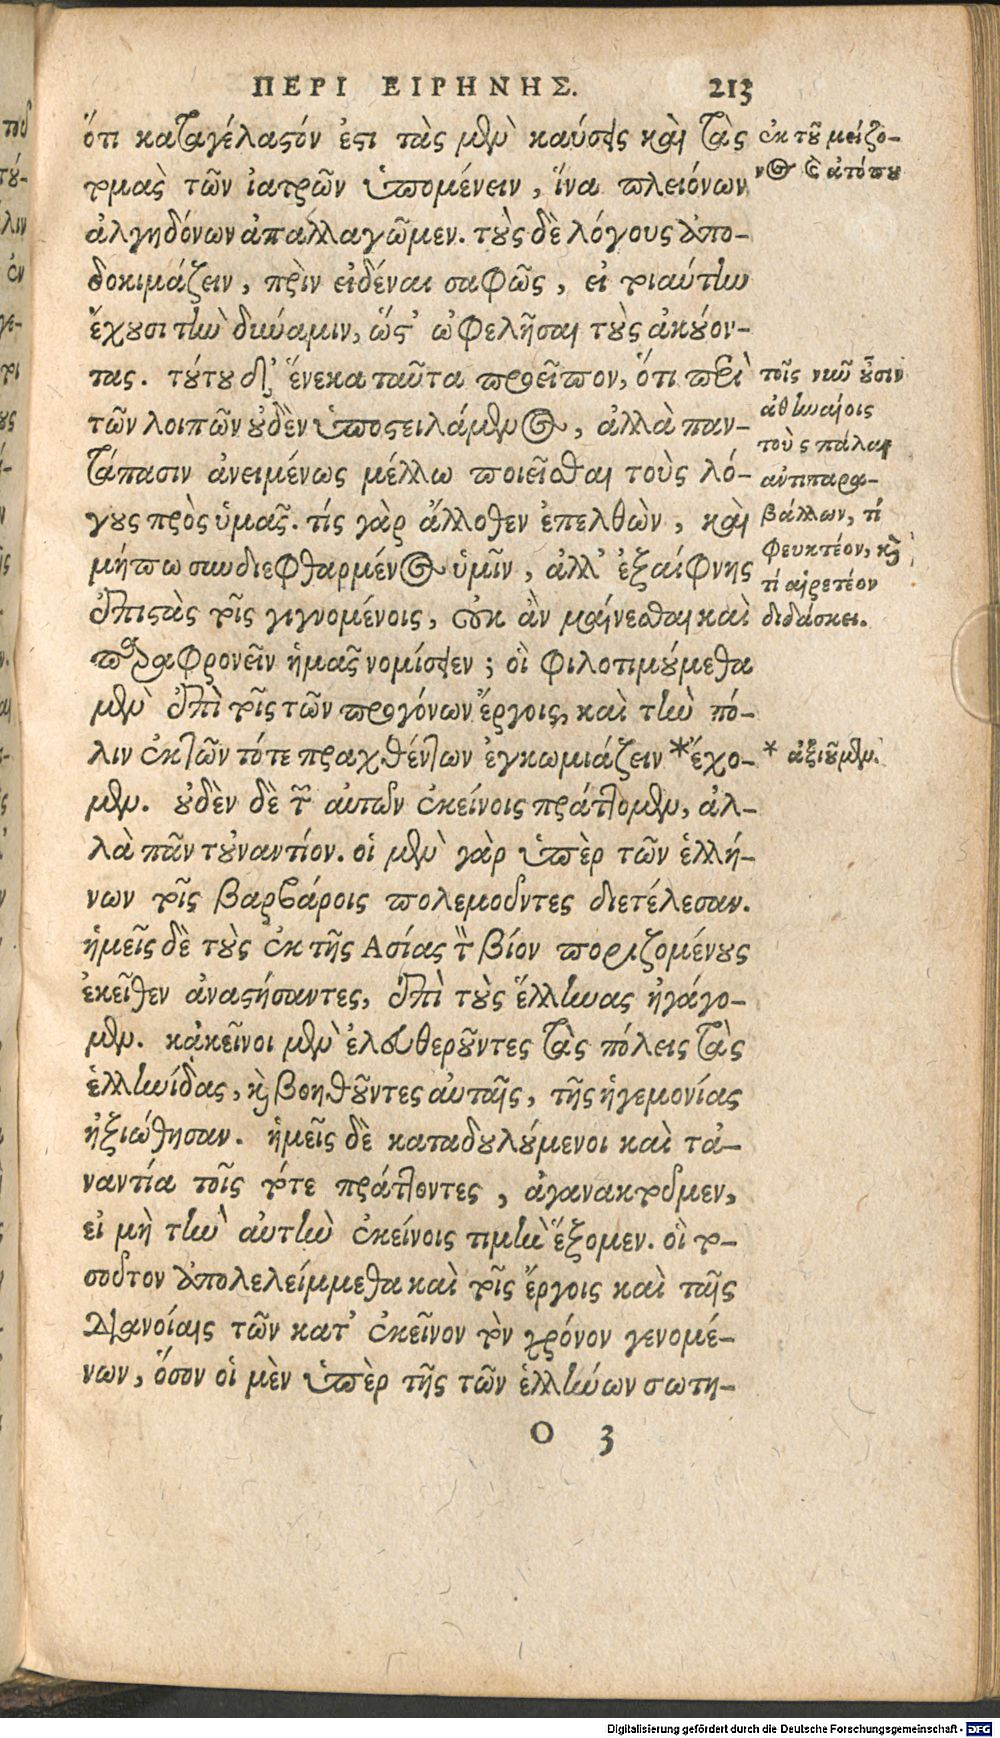 ΠΕΡΙ ΕΙΡΗΝΗΣ. 213
ὅτι καταγέλαστόν ἐστι τὰς μὲν καύσεις καὶ τὰς
τομὰς τῶν ἰατρῶν ὑπομένειν, ἵνα πλειόνων
ἀλγηδόνων ἀπαλλαγῶμεν. τοὺς δὲ λόγους ἀπο-
δοκιμάζειν, πρὶν εἰδέναι σαφῶς, εἰ τοιαύτην
ἔχουσι τὴν δύναμιν, ὥστ' ὠφελῆσαι τοὺς ἀκούον-
τας. τούτου δ' ἕνεκα ταῦτα προεῖπον, ὅτι περὶ
τῶν λοιπῶν οὐδὲν ὑποστειλάμενος, ἀλλὰ παν-
τάπασιν ἀνειμένως μέλλω ποιεῖσθαι τοὺς λό-
γους πρὸς ὑμᾶς. τίς γὰρ ἄλλοθεν ἐπελθὼν, καὶ
μήπω συνδιεφθαρμένος ὑμῖν, ἀλλ' ἐξαίφνης
ἐπιστὰς τοῖς γιγνομένοις, οὐκ ἂν μαίνεσθαι καὶ
παραφρονεῖν ἡμᾶς νομίσειεν; οἳ φιλοτιμούμεθα
μὲν ἐπὶ τοῖς τῶν προγόνων ἔργοις, καὶ τὴν πό-
λιν ἐκ τῶν τότε πραχθέντων ἐγκωμιάζειν *ἔχο-
μεν. οὐδὲν δὲ τῶν αὐτῶν ἐκείνοις πράττομεν, ἀλ-
λὰ πᾶν τοὐναντίον. οἱ μὲν γὰρ ὑπὲρ τῶν ἑλλή-
νων τοῖς βαρβάροις πολεμοῦντες διετέλεσαν.
ἡμεῖς δὲ τοὺς ἐκ τῆς Ασίας τὸν βίον ποριζομένους
ἐκεῖθεν ἀναστήσαντες, ἐπὶ τοὺς ἕλληνας ἠγάγο-
μεν. κἀκεῖνοι μὲν ἐλευθεροῦντες τὰς πόλεις τὰς
ἑλληνίδας, καὶ βοηθοῦντες αὐταῖς, τῆς ἡγεμονίας
ἠξιώθησαν. ἡμεῖς δὲ καταδουλούμενοι καὶ τἀ-
ναντία τοῖς τότε πράττοντες, ἀγανακτοῦμεν,
εἰ μὴ τὴν αὐτὴν ἐκείνοις τιμὴν ἕξομεν. οἳ το-
σοῦτον ἀπολελείμμεθα καὶ τοῖς ἔργοις καὶ ταῖς
διανοίαις τῶν κατ' ἐκεῖνον τὸν χρόνον γενομέ-
νων, ὅσον οἱ μὲν ὑπὲρ τῆς τῶν ἑλλήνων σωτη-
O 3
ἐκ τοῦ μείζο-
νος καὶ ἀτόπου
τοῖς νῦν οὖσιν
ἀθηναίοις
τοὺς πάλαι
ἀντιπαρα-
βάλλων, τί
φευκτέον, καὶ
τί αἱρετέον
διδάσκει.
* ἀξιοῦμεν.
Digitalisierung gefördert durch die Deutsche Forschungsgemeinschaft - DFG